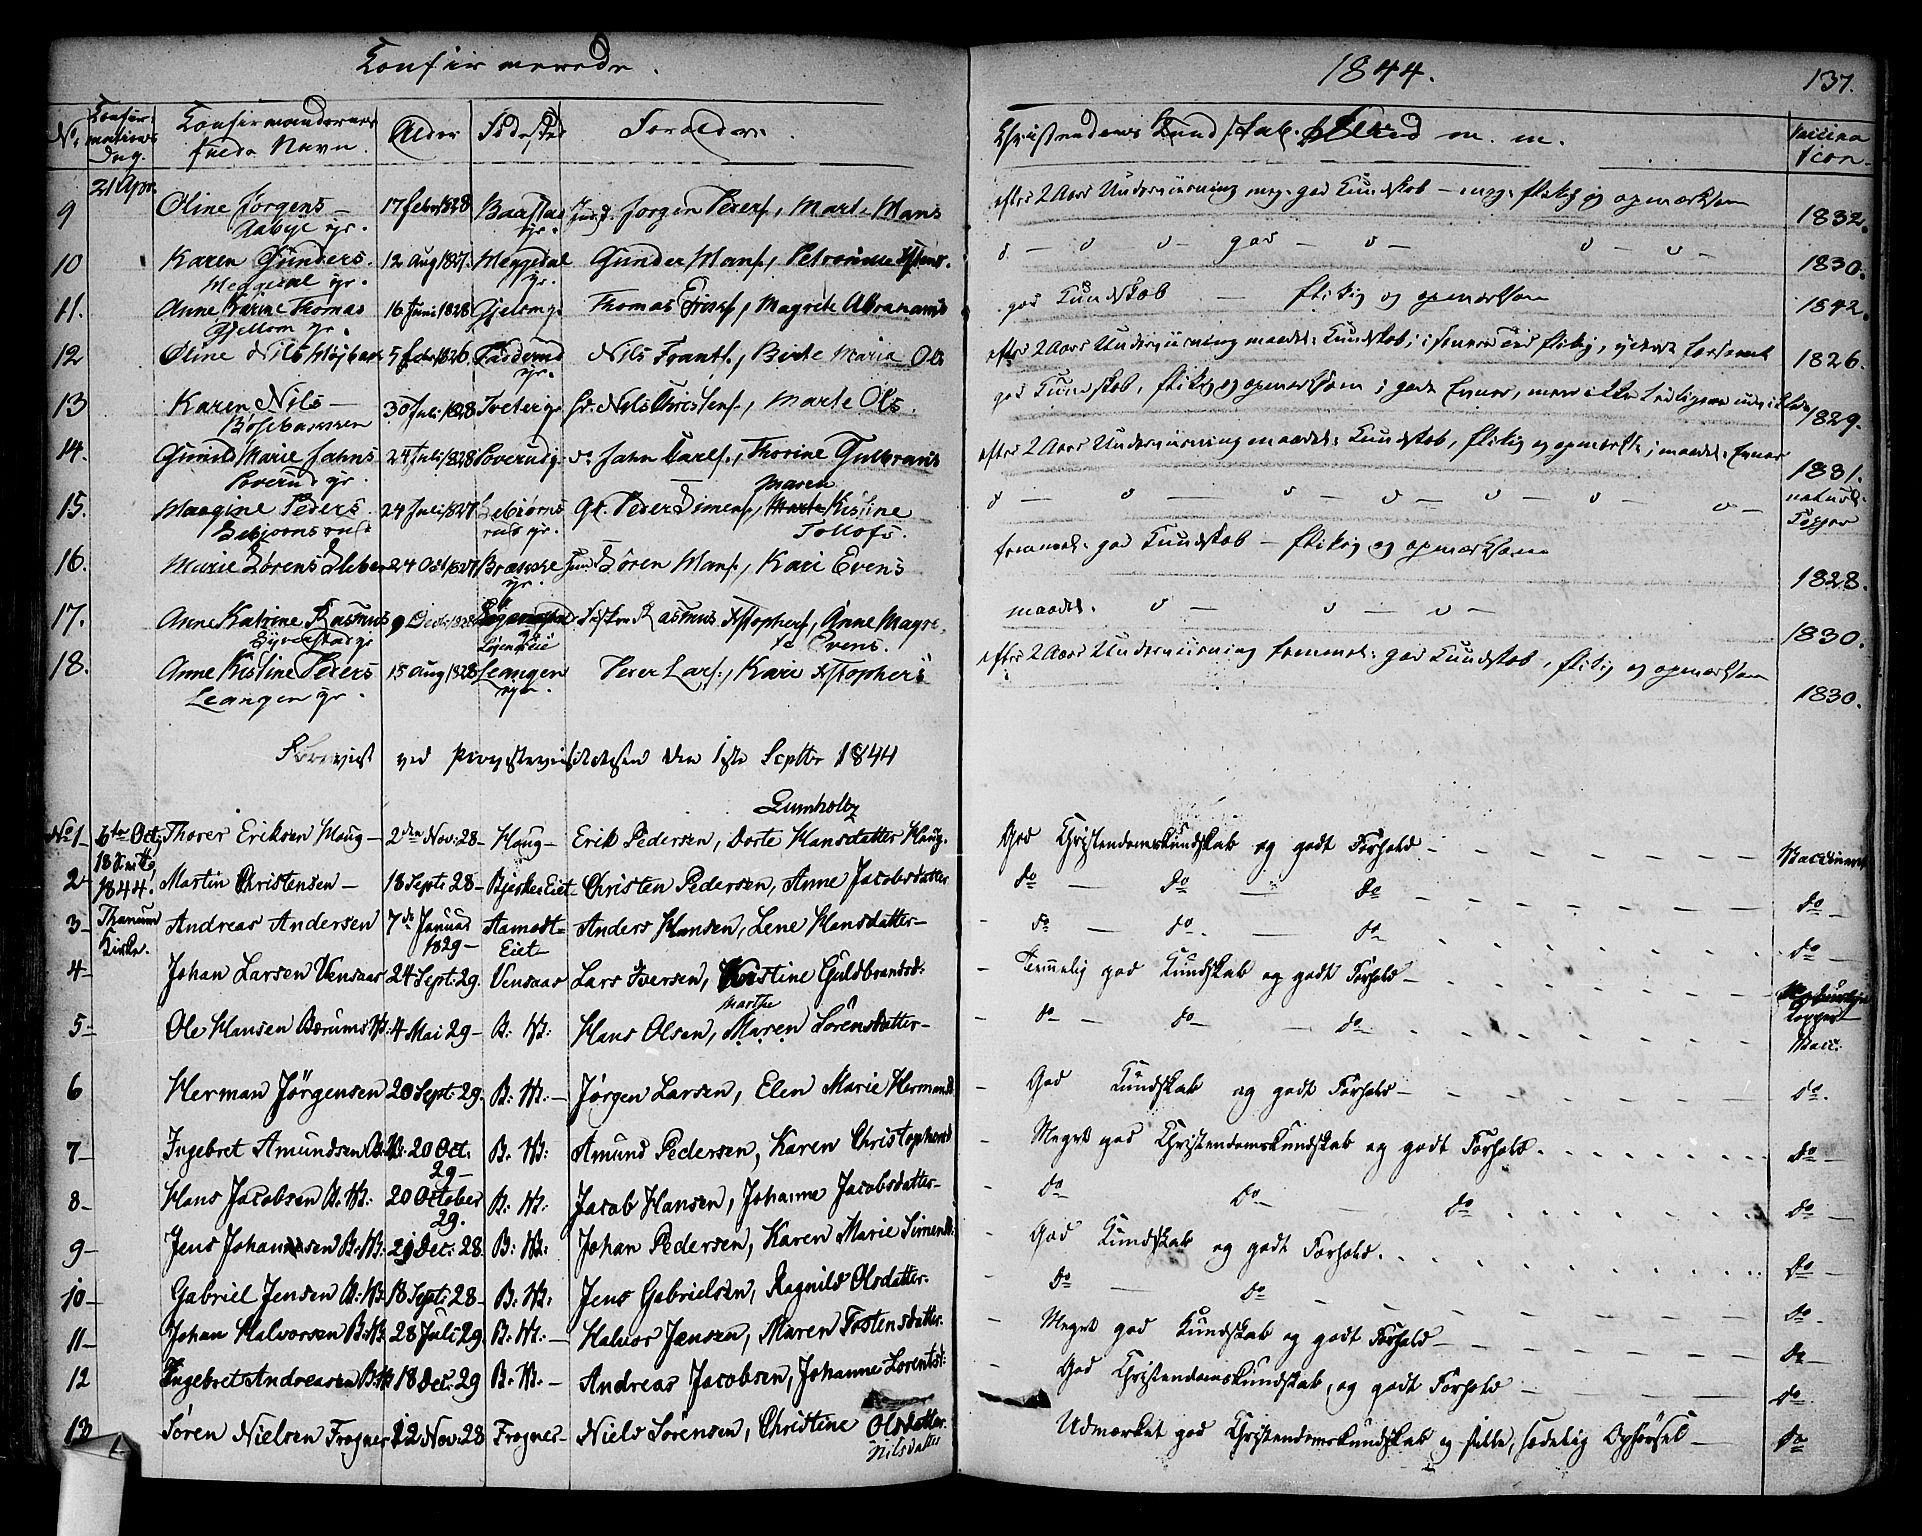 Confirmerede. 1844. 137.
No. Confirmations Dag. Confirmandernes fulde Navn. Alder Födested Forældre. Christendoms Kundskab, Flid m. m. Vaccination
21 Apr.
9 Oline Jörgens – 17 Febr 1828 Baastad Jörgen Peders., Marte Hans efter 2 Aars Underviisning meg: god Kundskab – meg: flitig og opmærksom 1832.
Aabye gr. gr.
10 Karen Gunders. 12 Aug 1827. Meggedal Gunder Hans., Petronille d – d d – god – d – d – d – 1830.
Meggedal gr. gr.
11. Anne Karine Thomas 16 Juni 1828 Thomas Erics., Magrete Abrahams god Kundskab – flitig og opmærksom 1842.
Gjellom gr.
12 Oline Nils 5 Febr 1826. Nils Frants., Birte Maria Ols efter 2 Aars Underviisning maadel: Kundskab, 1826.
gr.
13 Karen Nils – 30 Juli 1828 Tveter gr Nils Christens., Marte Ols. god Kundskab, flitig og opmærksom, gode Evner, men ikke 1829.
14. Gunild Marie Jahns 24 Juli 1828 Poverud gr. Jahn Carls., Thorine Gulbrans efter 2 Aars Underviisning maadel: Kundskab, flitig og opmærks: maadel: Evner 1831.
Poverud gr.
15. Maagine Peders. 24 Juli 1827 Peder Simens., Maren Kistine d – d – d – d – d – d – d – naturl. Kopper
Tollefs.
16. Marie Sörens 24 Oct 1827 Sören Hans., Kari Evens temmel: god Kundskab – flitig og opmærksom 1828.
gr.
17. Anne Katrine Rasmus 9 Dec 1828 Rasmus Kstophers., Anne Magre- maadel. d – d – d – 1830.
te Evens.
18. Anne Kistine Peders 15 Aug 1828 Leangen Peder Lars., Kari Kstophers efter 2 Aars Underviisning temmel: god Kundskab, flitig og opmærksom 1830.
Leangen gr. gr.
ved Provstevisitatsen den 1ste Septbr 1844
Lumholtz
No 1 6te Oct: Thorer Eriksen Houg – 2den Nov: 28 – Houg – Erik Pedersen, Dorte Hansdatter Haug. God Christendomskundskab og godt Forhold – Vaccineret
1844.
2 – Martin Christensen – 18 Sept: 28 – Bjerke Eiet Christen Pedersen, Anne Jacobsdatter do – do – do do –
3 – Thanum Kirke. Andreas Andersen 7de Januar 1829 – Aamodt- Eiet Anders Hansen, Lene Hansdatter – do – do – do do –
4 – Johan Larsen Vensaas 24 Sept: 29. Vensaas Lars Iversen, Kristine Guldbrandsd: – Temmelig god Kundskab og godt Forhold – Kopper
Marthe
5 – Ole Hansen Bærums V: 4 Mai 29 – B: V: Hans Olsen, Maren Sörensdatter – – do – do – do Vacc:
6 Herman Jörgensen 20 Sept: 29. B: V: – Jörgen Larsen, Elen Marie Hermansd – God Kundskab og godt Forhold – do.
7 – Ingebret Amundsen B: V: 20 Oct: 29 – B: V: Amund Pedersen, Karen Christophersd – Meget god Christendomskundskab og godt Forhold. do –
8 – Hans Jacobsen B: V: 20 October 29. B: V: Jacob Hansen, Johanne Jacobsdatter – – do do – do do –
9 – Jens Johansen B: V: 21 Dec: 28. B: V: Johan Pedersen, Karen Marie Simensd: – God Kundskab og godt Forhold. do –
10 – Gabriel Jensen B: V: 18 Sept: 28 – B: V: Jens Gabrielsen, Ragnild Olsdatter – – do – do do.
11 – Johan Halvorsen B: V: 28 Juli 29. B: V: – Halvor Jensen, Maren Tostensdatter – Meget god Kundskab og godt Forhold – do –
12 Ingebret Andreasen B: V: 18 Dec: 29 B: V: – Andreas Jacobsen, Johanne Lorentsd: – God Christendomskundskab, og godt Forhold – do.
13 Sören Nielsen Frogner 12 Nov: 28 Frogner – Niels Sörensen, Christine Olsdatter Udmærket god Christendomskundskab og stille, sædelig Opförsel – do
Nilsdatter